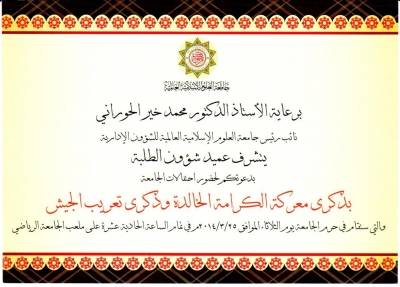 جامعة العلوم الإسلامية العالمية
برعاية الأستاذ الدكتور محمد خير الحوراني
نائب رئيس جامعة العلوم الإسلامية العالمية للشؤون الإدارية
يتشرف عميد شؤون الطلبة
بدعوتكم لحضور احتفالات الجامعة
بذكرى معركة الكرامة الخالدة وذكرى تعريب الجيش
والتي ستقام في حرم الجامعة يوم الثلاثاء الموافق ٢٠١٤/٣/٢٥م في تمام الساعة الحادية عشرة على ملعب الجامعة الرياضي